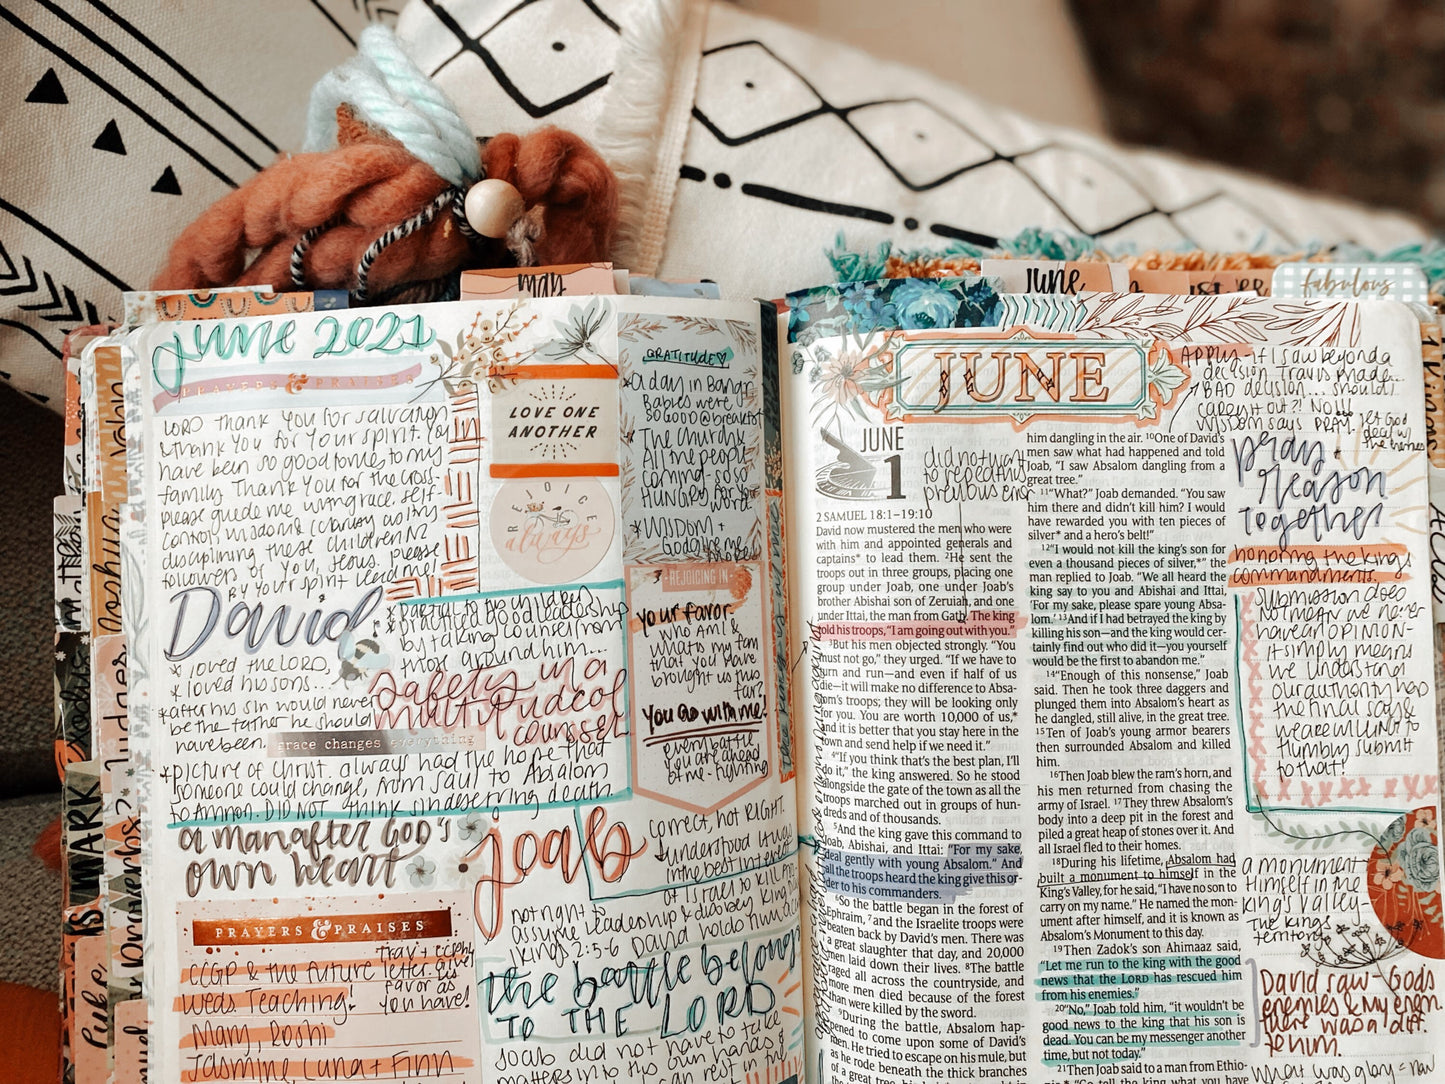 May
June
fabulous
june 2021
PRAYERS & PRAISES
LORD thank you for salvation
& thank you for your spirit. You
have been so good to me & my
family. Thank you for the cross-
please guide me w/ your grace, self-
control, wisdom &
disciplining these children 2
followers of you, Jesus. please
by your spirit lead me!
LOVE ONE
ANOTHER
REJOICE
always
GRATITUDE
*a day in Bangr
Babies were
so GOOD @ breakfast
The church
All the people
coming so so
HUNGRY for your
word
*WISDOM +
REJOICING IN
your favor-
who am I &
what's my fam
that you have
brought us this
far?
YOU GO with me!
every battle
you are ahead
of me - fighting
David
* loved the LORD,
* loved his sons...
*after his sin would never
be the father he should
have been.
*partial to his children
*practiced good leadership
by "taking counsel from
those around him...
Safety in a
multitude of
counsel
grace changes everything
*picture of Christ. always had the hope that
someone could change, from Saul to Absalom
to Amnon. DID NOT think on deserving death.
a man after God's
own heart
joab
correct, not RIGHT.
understood it was
in the best interest
of Israel to kill
not right to
assume leadership & disobey king
1 Kings 2:5-6 David
the battle belongs
TO THE LORD
joab did not have to take
matters into his own hands &
can rest in the
PRAYERS & PRAISES
CCGP & the future
Weds. Teaching!
Mary, Roshi
Jasmine, Luna + Finn
letter. give
favor as
you have!
Joshua
Judges
Proverbs?
MARK
IS
Luke
Acts
JUNE
JUNE
1
did not want
to repeat his
previous error
2 SAMUEL 18:1–19:10
David now mustered the men who were
with him and appointed generals and
captains* to lead them. 2He sent the
troops out in three groups, placing one
group under Joab, one under Joab's
brother Abishai son of Zeruiah, and one
under Ittai, the man from Gath. The king
told his troops, "I am going out with you."
3But his men objected strongly. "You
must not go," they urged. "If we have to
turn and run—and even if half of us
die—it will make no difference to Absa-
lom's troops; they will be looking only
for you. You are worth 10,000 of us,*
and it is better that you stay here in the
town and send help if we need it."
4"If you think that's the best plan, I'll
do it," the king answered. So he stood
alongside the gate of the town as all the
troops marched out in groups of hun-
dreds and of thousands.
5And the king gave this command to
Joab, Abishai, and Ittai: "For my sake,
deal gently with young Absalom." And
all the troops heard the king give this or-
der to his commanders.
6So the battle began in the forest of
Ephraim, 7and the Israelite troops were
beaten back by David's men. There was
a great slaughter that day, and 20,000
men laid down their lives. 8The battle
raged all across the countryside, and
more men died because of the forest
than were killed by the sword.
9During the battle, Absalom hap-
pened to come upon some of David's
men. He tried to escape on his mule, but
as he rode beneath the thick branches
of a great tree, his
him dangling in the air. 10One of David's
men saw what had happened and told
Joab, "I saw Absalom dangling from a
great tree."
11"What?" Joab demanded. "You saw
him there and didn't kill him? I would
have rewarded you with ten pieces of
silver* and a hero's belt!"
12"I would not kill the king's son for
even a thousand pieces of silver,*" the
man replied to Joab. "We all heard the
king say to you and Abishai and Ittai,
'For my sake, please spare young Absa-
lom.' 13And if I had betrayed the king by
killing his son—and the king would cer-
tainly find out who did it—you yourself
would be the first to abandon me."
14"Enough of this nonsense," Joab
said. Then he took three daggers and
plunged them into Absalom's heart as
he dangled, still alive, in the great tree.
15Ten of Joab's young armor bearers
then surrounded Absalom and killed
him.
16Then Joab blew the ram's horn, and
his men returned from chasing the
army of Israel. 17They threw Absalom's
body into a deep pit in the forest and
piled a great heap of stones over it. And
all Israel fled to their homes.
18During his lifetime, Absalom had
built a monument to himself in the
King's Valley, for he said, "I have no son to
carry on my name." He named the mon-
ument after himself, and it is known as
Absalom's Monument to this day.
19Then Zadok's son Ahimaaz said,
"Let me run to the king with the good
news that the LORD has rescued him
from his enemies."
20"No," Joab told him, "it wouldn't be
good news to the king that his son is
dead. You can be my messenger another
time, but not today."
21Then Joab said to a man from Ethio-
pia,* "Go tell the king what you have
APPLY- if I saw beyond a
decision Travis made...
BAD decision... should I
carry it out?! No!
WISDOM says PRAY. let God
deal w/
the times
pray +
reason
together
honoring the kings
commandments.
submission does
not mean we never
have an OPINION-
it simply means
we understand
our authority has
the final say &
we are willing to
humbly submit
to that!
a monument
Himself in the
Kings valley-
the kings
territory
David saw- Gods
enemies & my enem.
there was a diff.
to him.